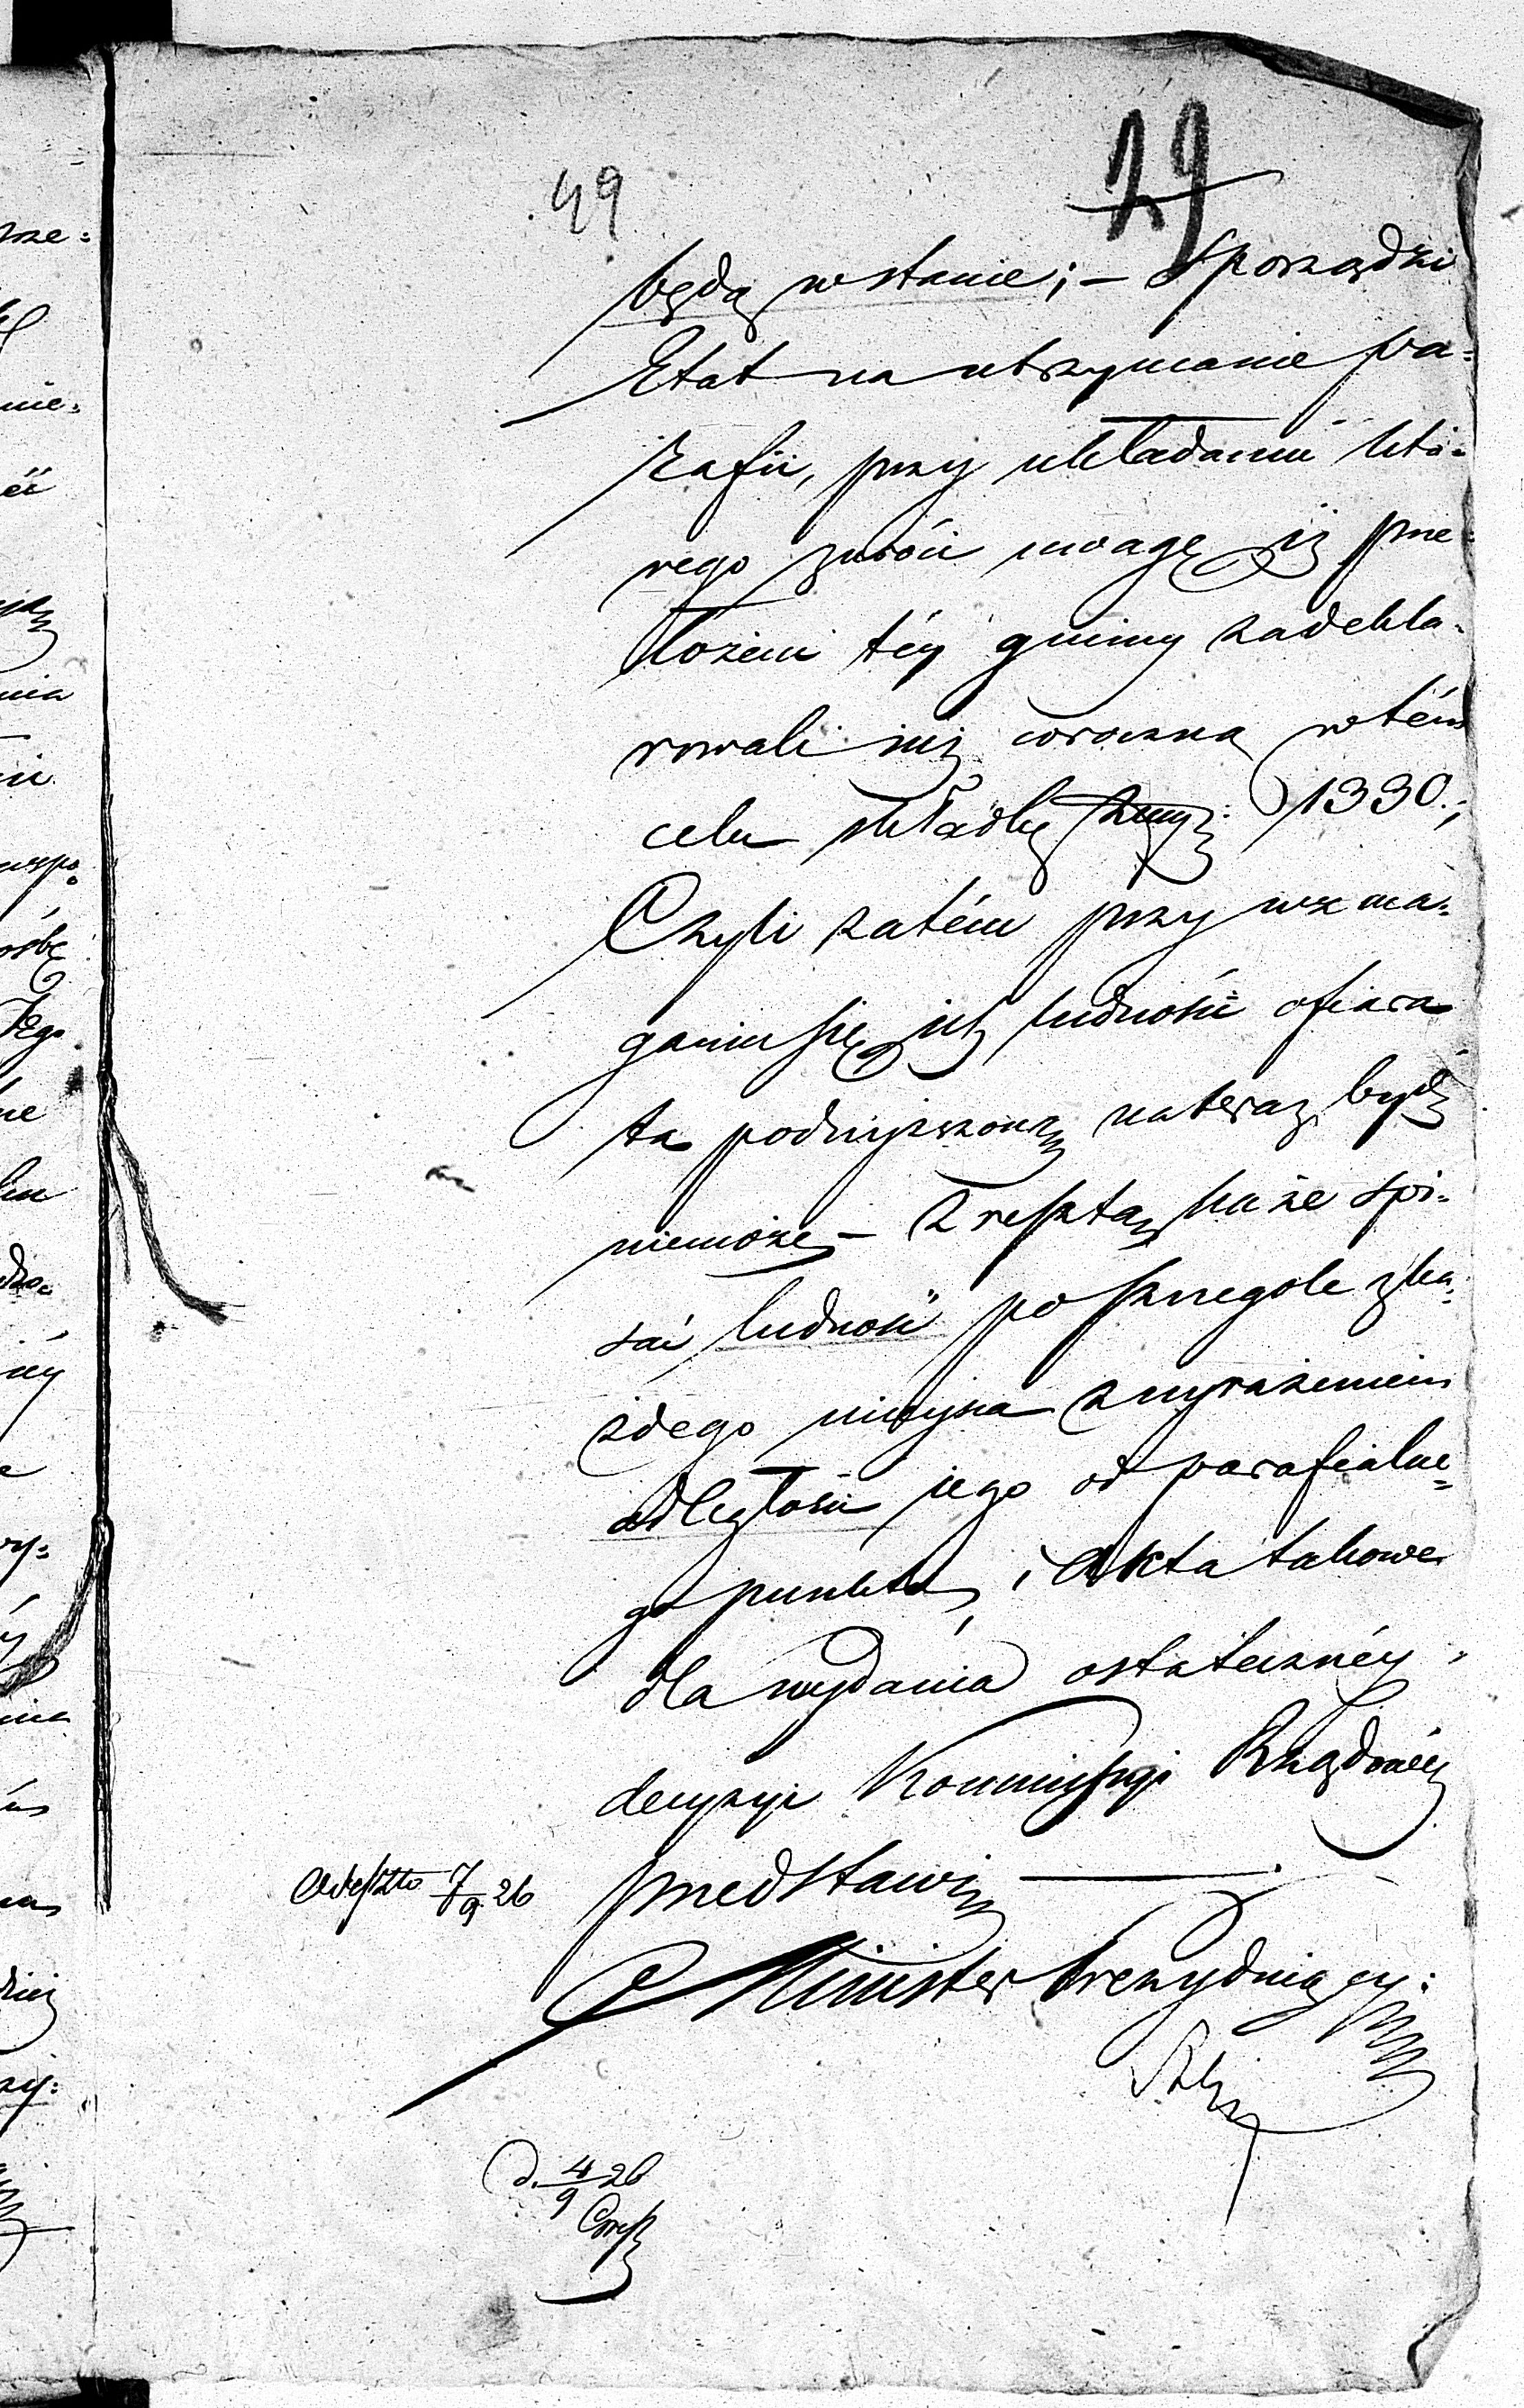 49
29
będą w stanie; – Sporządzi
Etat na utrzymanie pa=
rafii, przy układaniu któ=
rego zwróci uwagę iż prze=
łożeni téy gminy zadekla=
rowali już coroczną w tém
celu składkę 1330.;
Czyli zatém przy wzma=
ganiu się ich ludności ofiara
ta podwyższoną na teraz bydź
niemoże – Zresztą każe spi=
sać ludność poszczególe z ka=
żdego miejsca z wyrażeniem
odległości jego od parafialne=
go punktu, i Akta takowe
dla wydania ostatecznéy
decyzyi Kommissyi Rządowéy
przedstawi
Minister Prezydujący:
Odeszło 7/9 26
d. 4/9 26